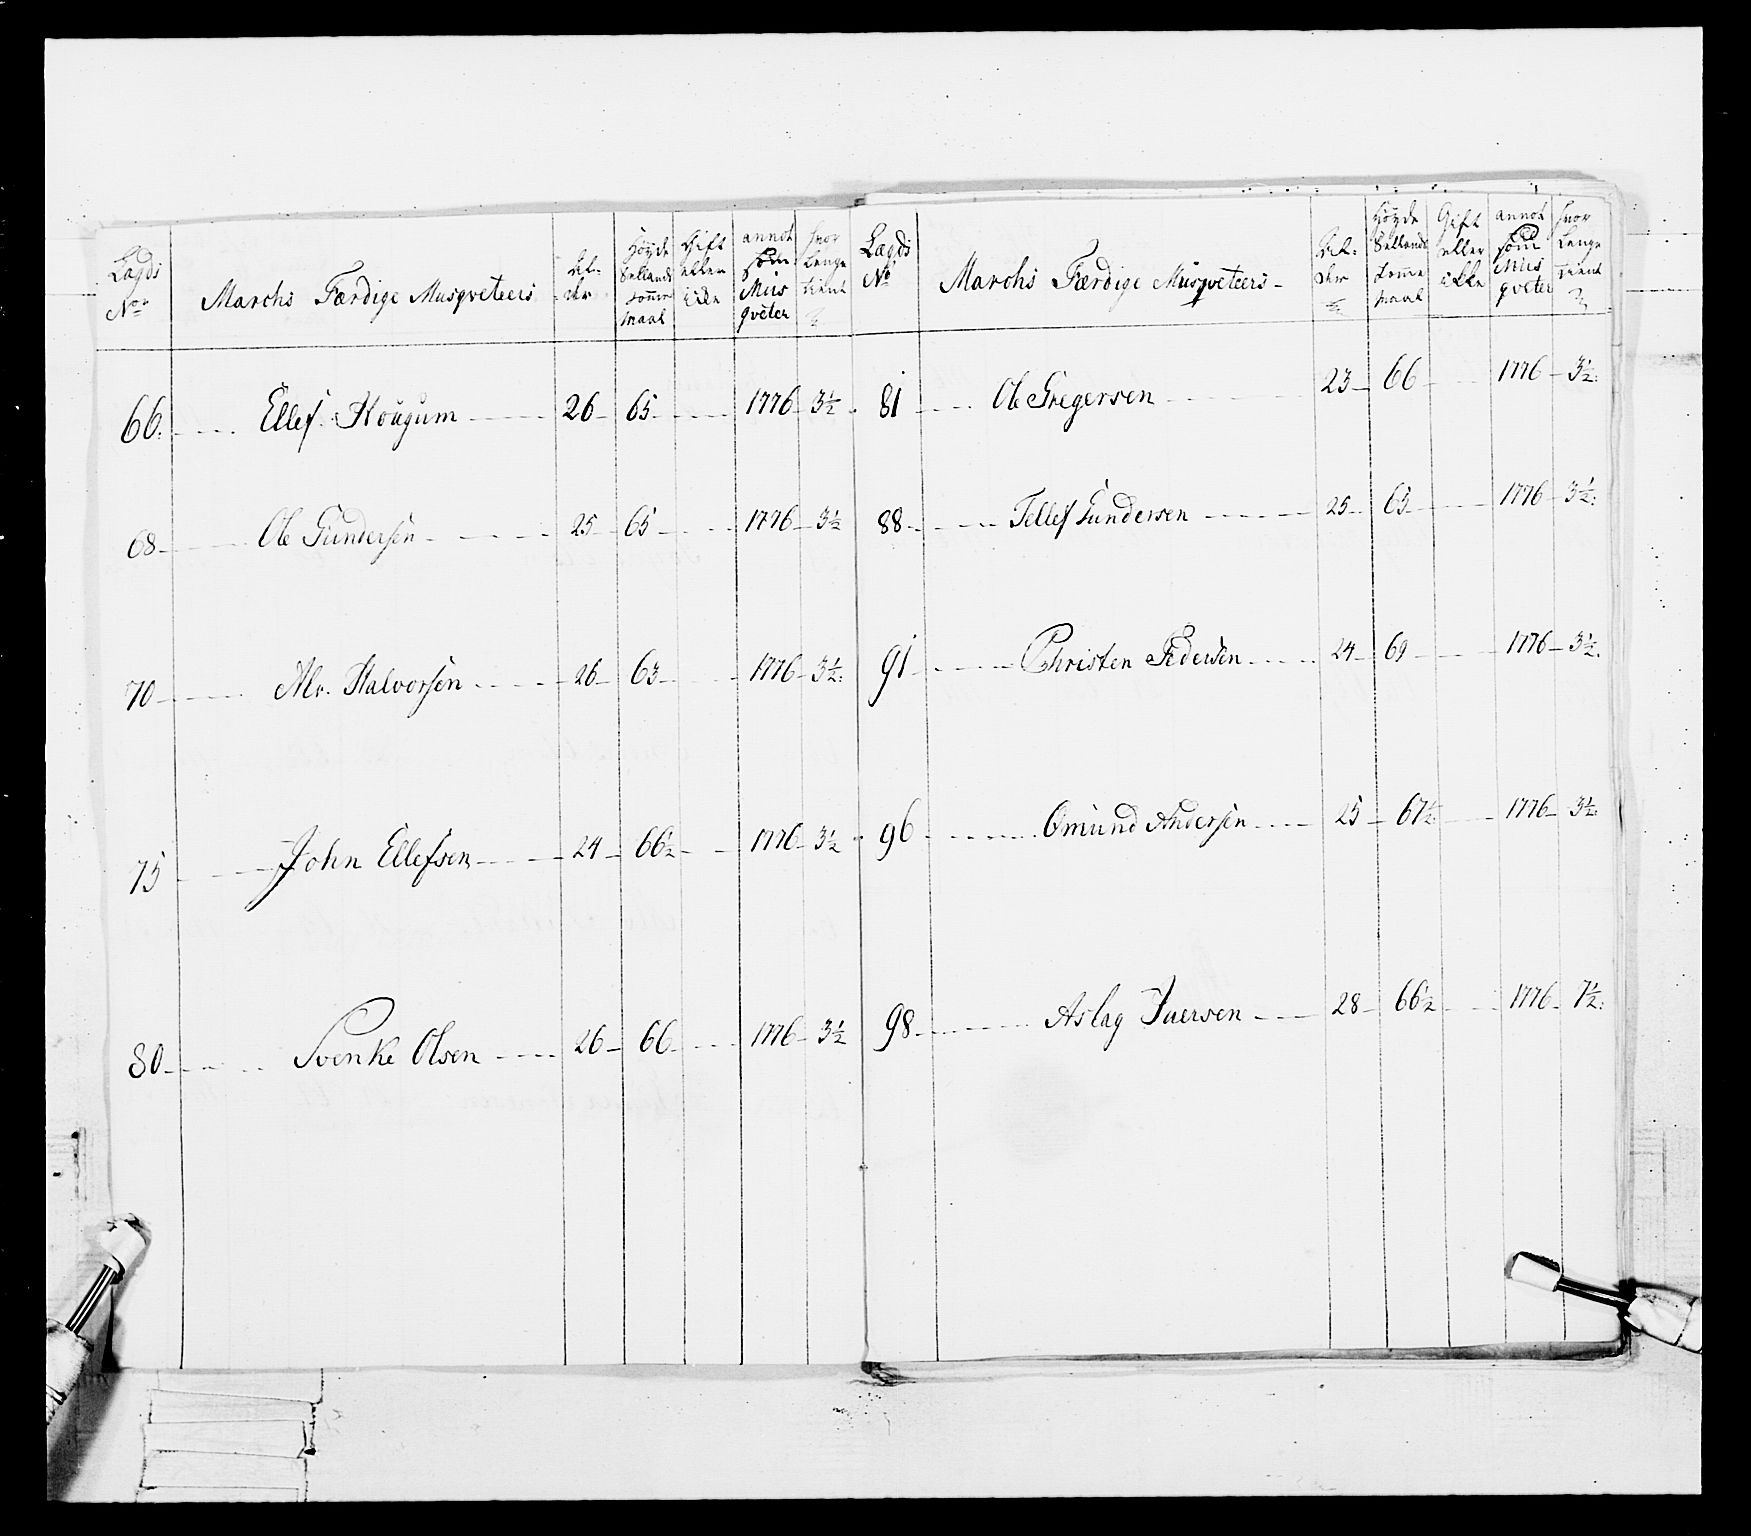 Lagds No Marchs Færdige Musqveteers Al- der Höyde Sellands tomme Maal Gift eller ikke annot som Mus qveter hvor Længe tient
66. Ellef Hougum 26 65 1776 3½
68 Ole Gundersen 25 65 1776 3½
70 Alv. Halvorsen 26 63 1776 3½
75 John Ellefsen 24 66½ 1776 3½
80 Svenke Olsen 26 66 1776 3½
Lægds No Marchs Færdige Musqveteers Al- der Höyde Sellands tomme Maal Gift eller ikke annot som Mus qveter hvor Længe tient
81 Ole Gregersen 23 66 1776 3½
88 Tellef Gundersen 25 65 1776 3½
91 Christen Pedersen 24 69 1776 3½
96 Omund Andersen 25 67½ 1776 3½
98 Aslag Juersen 28 66½ 1776 7½